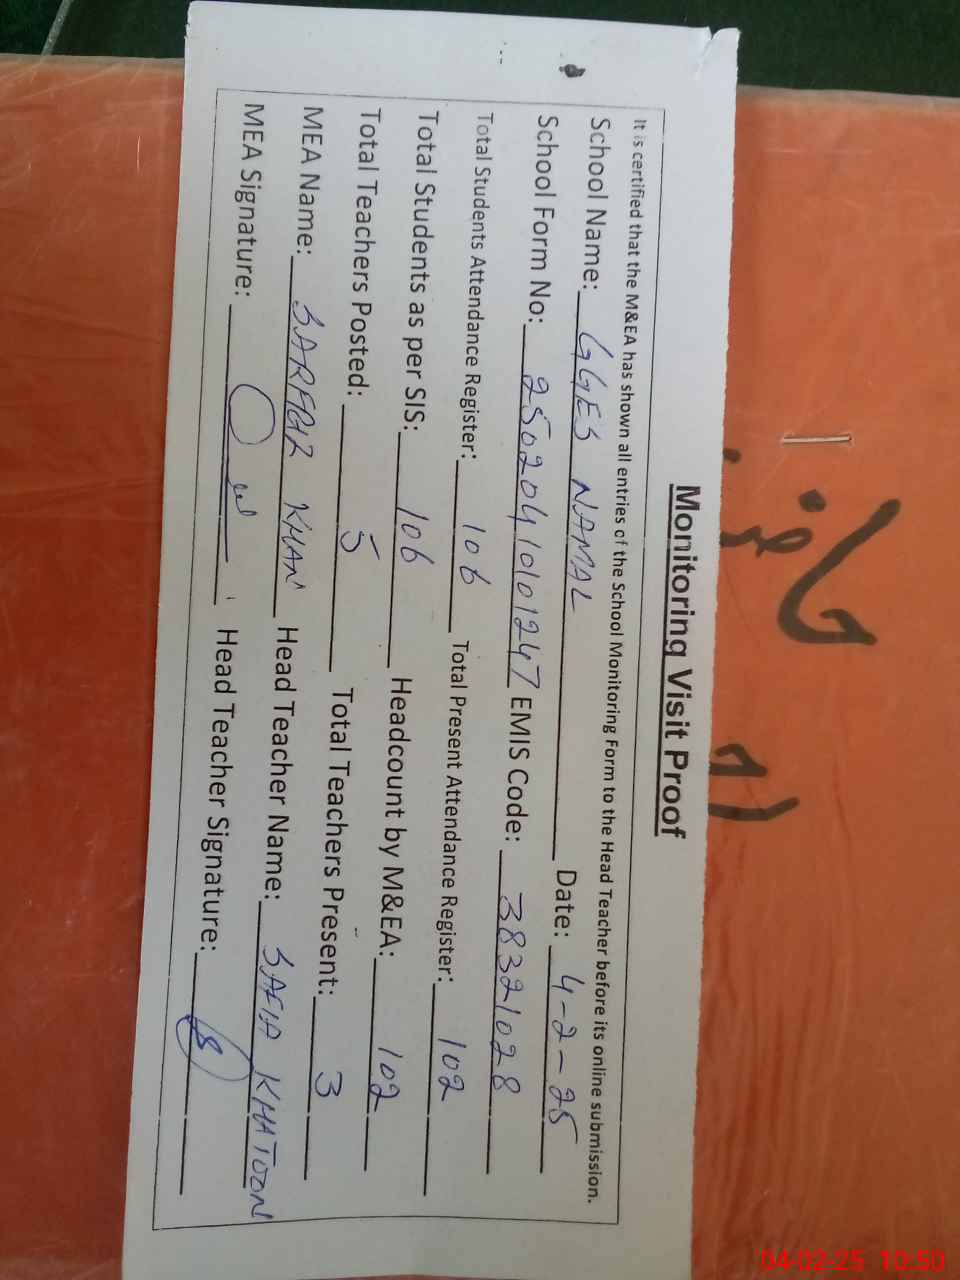 Monitoring Visit Proof
It is certified that the M&EA has shown all entries of the School Monitoring Form to the Head Teacher before its online submission.
School Name: GGES NAMAL Date: 4-2-25
School Form No: 25020410101247 EMIS Code: 38321028
Total Students Attendance Register: 106 Total Present Attendance Register: 102
Total Students as per SIS: 106 Headcount by M&EA: 102
Total Teachers Posted: 5 Total Teachers Present: 3
MEA Name: SARFRAZ KHAN Head Teacher Name: SAFIA KHATOON
MEA Signature: Head Teacher Signature:
04-02-25 10:50